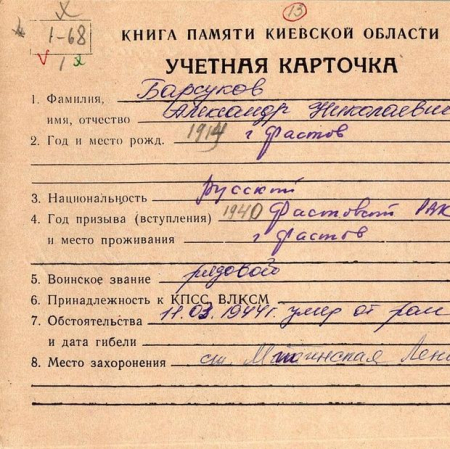 13
Х
1-68
КНИГА ПАМЯТИ КИЕВСКОЙ ОБЛАСТИ
УЧЕТНАЯ КАРТОЧКА
1. Фамилия, Барсуков
имя, отчество Александр Николаевич
2. Год и место рожд. 1914 г Фастов
3. Национальность русский
4. Год призыва (вступления) 1940 Фастовский РВК
и место проживания г Фастов
5. Воинское звание рядовой
6. Принадлежность к КПСС, ВЛКСМ
7. Обстоятельства 11.03.1944г. умер от ран
и дата гибели
8. Место захоронения ст. Мшинская Лен